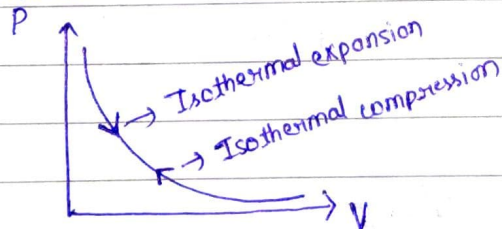 P
→ Isothermal expansion
→ Isothermal compression
V